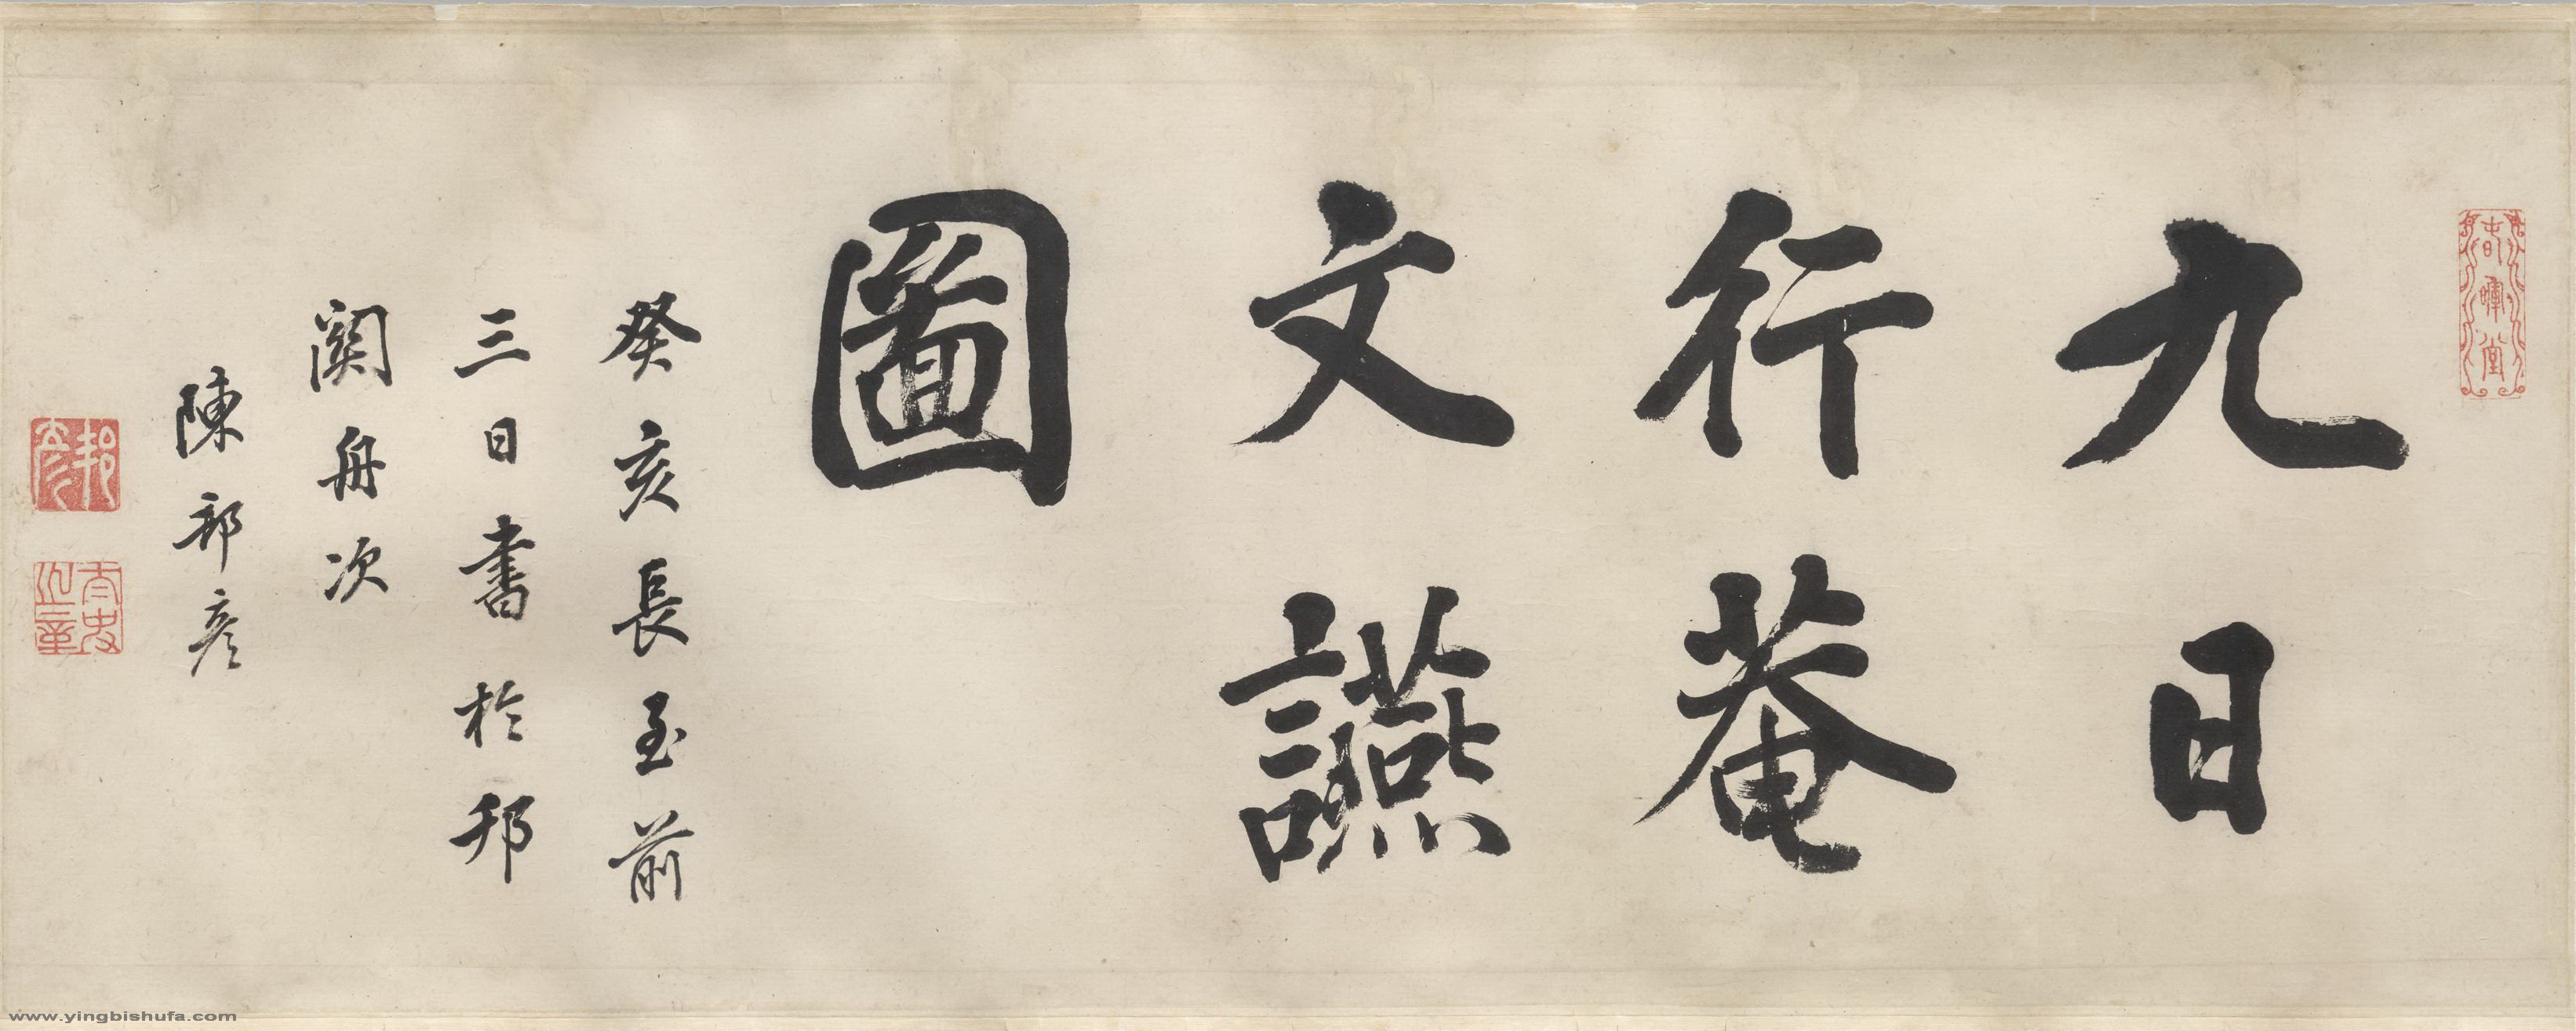 春暉堂
九日
行菴
文讌
圖
癸亥長至前
三日書於邗
關舟次
陳邦彥
邦彥
www.yingbishufa.com